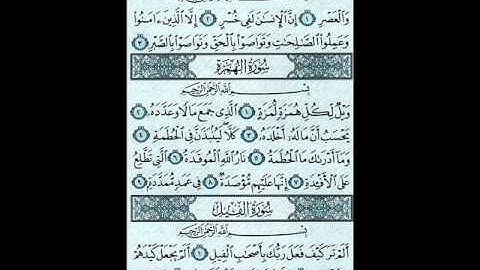 وَالْعَصْرِ ١ إِنَّ الْإِنسَٰنَ لَفِى خُسْرٍ ٢ إِلَّا الَّذِينَ ءَامَنُوا
وَعَمِلُوا الصَّٰلِحَٰتِ وَتَوَاصَوْا بِالْحَقِّ وَتَوَاصَوْا بِالصَّبْرِ ٣
سُورَةُ الْهُمَزَةِ
بِسْمِ اللَّهِ الرَّحْمَٰنِ الرَّحِيمِ
وَيْلٌ لِّكُلِّ هُمَزَةٍ لُّمَزَةٍ ١ الَّذِى جَمَعَ مَالًا وَعَدَّدَهُ ٢
يَحْسَبُ أَنَّ مَالَهُ أَخْلَدَهُ ٣ كَلَّا لَيُنبَذَنَّ فِى الْحُطَمَةِ ٤
وَمَا أَدْرَىٰكَ مَا الْحُطَمَةُ ٥ نَارُ اللَّهِ الْمُوقَدَةُ ٦ الَّتِى تَطَّلِعُ
عَلَى الْأَفْـِٔدَةِ ٧ إِنَّهَا عَلَيْهِم مُّؤْصَدَةٌ ٨ فِى عَمَدٍ مُّمَدَّدَةٍ ٩
سُورَةُ الْفِيلِ
بِسْمِ اللَّهِ الرَّحْمَٰنِ الرَّحِيمِ
أَلَمْ تَرَ كَيْفَ فَعَلَ رَبُّكَ بِأَصْحَٰبِ الْفِيلِ ١ أَلَمْ يَجْعَلْ كَيْدَهُمْ